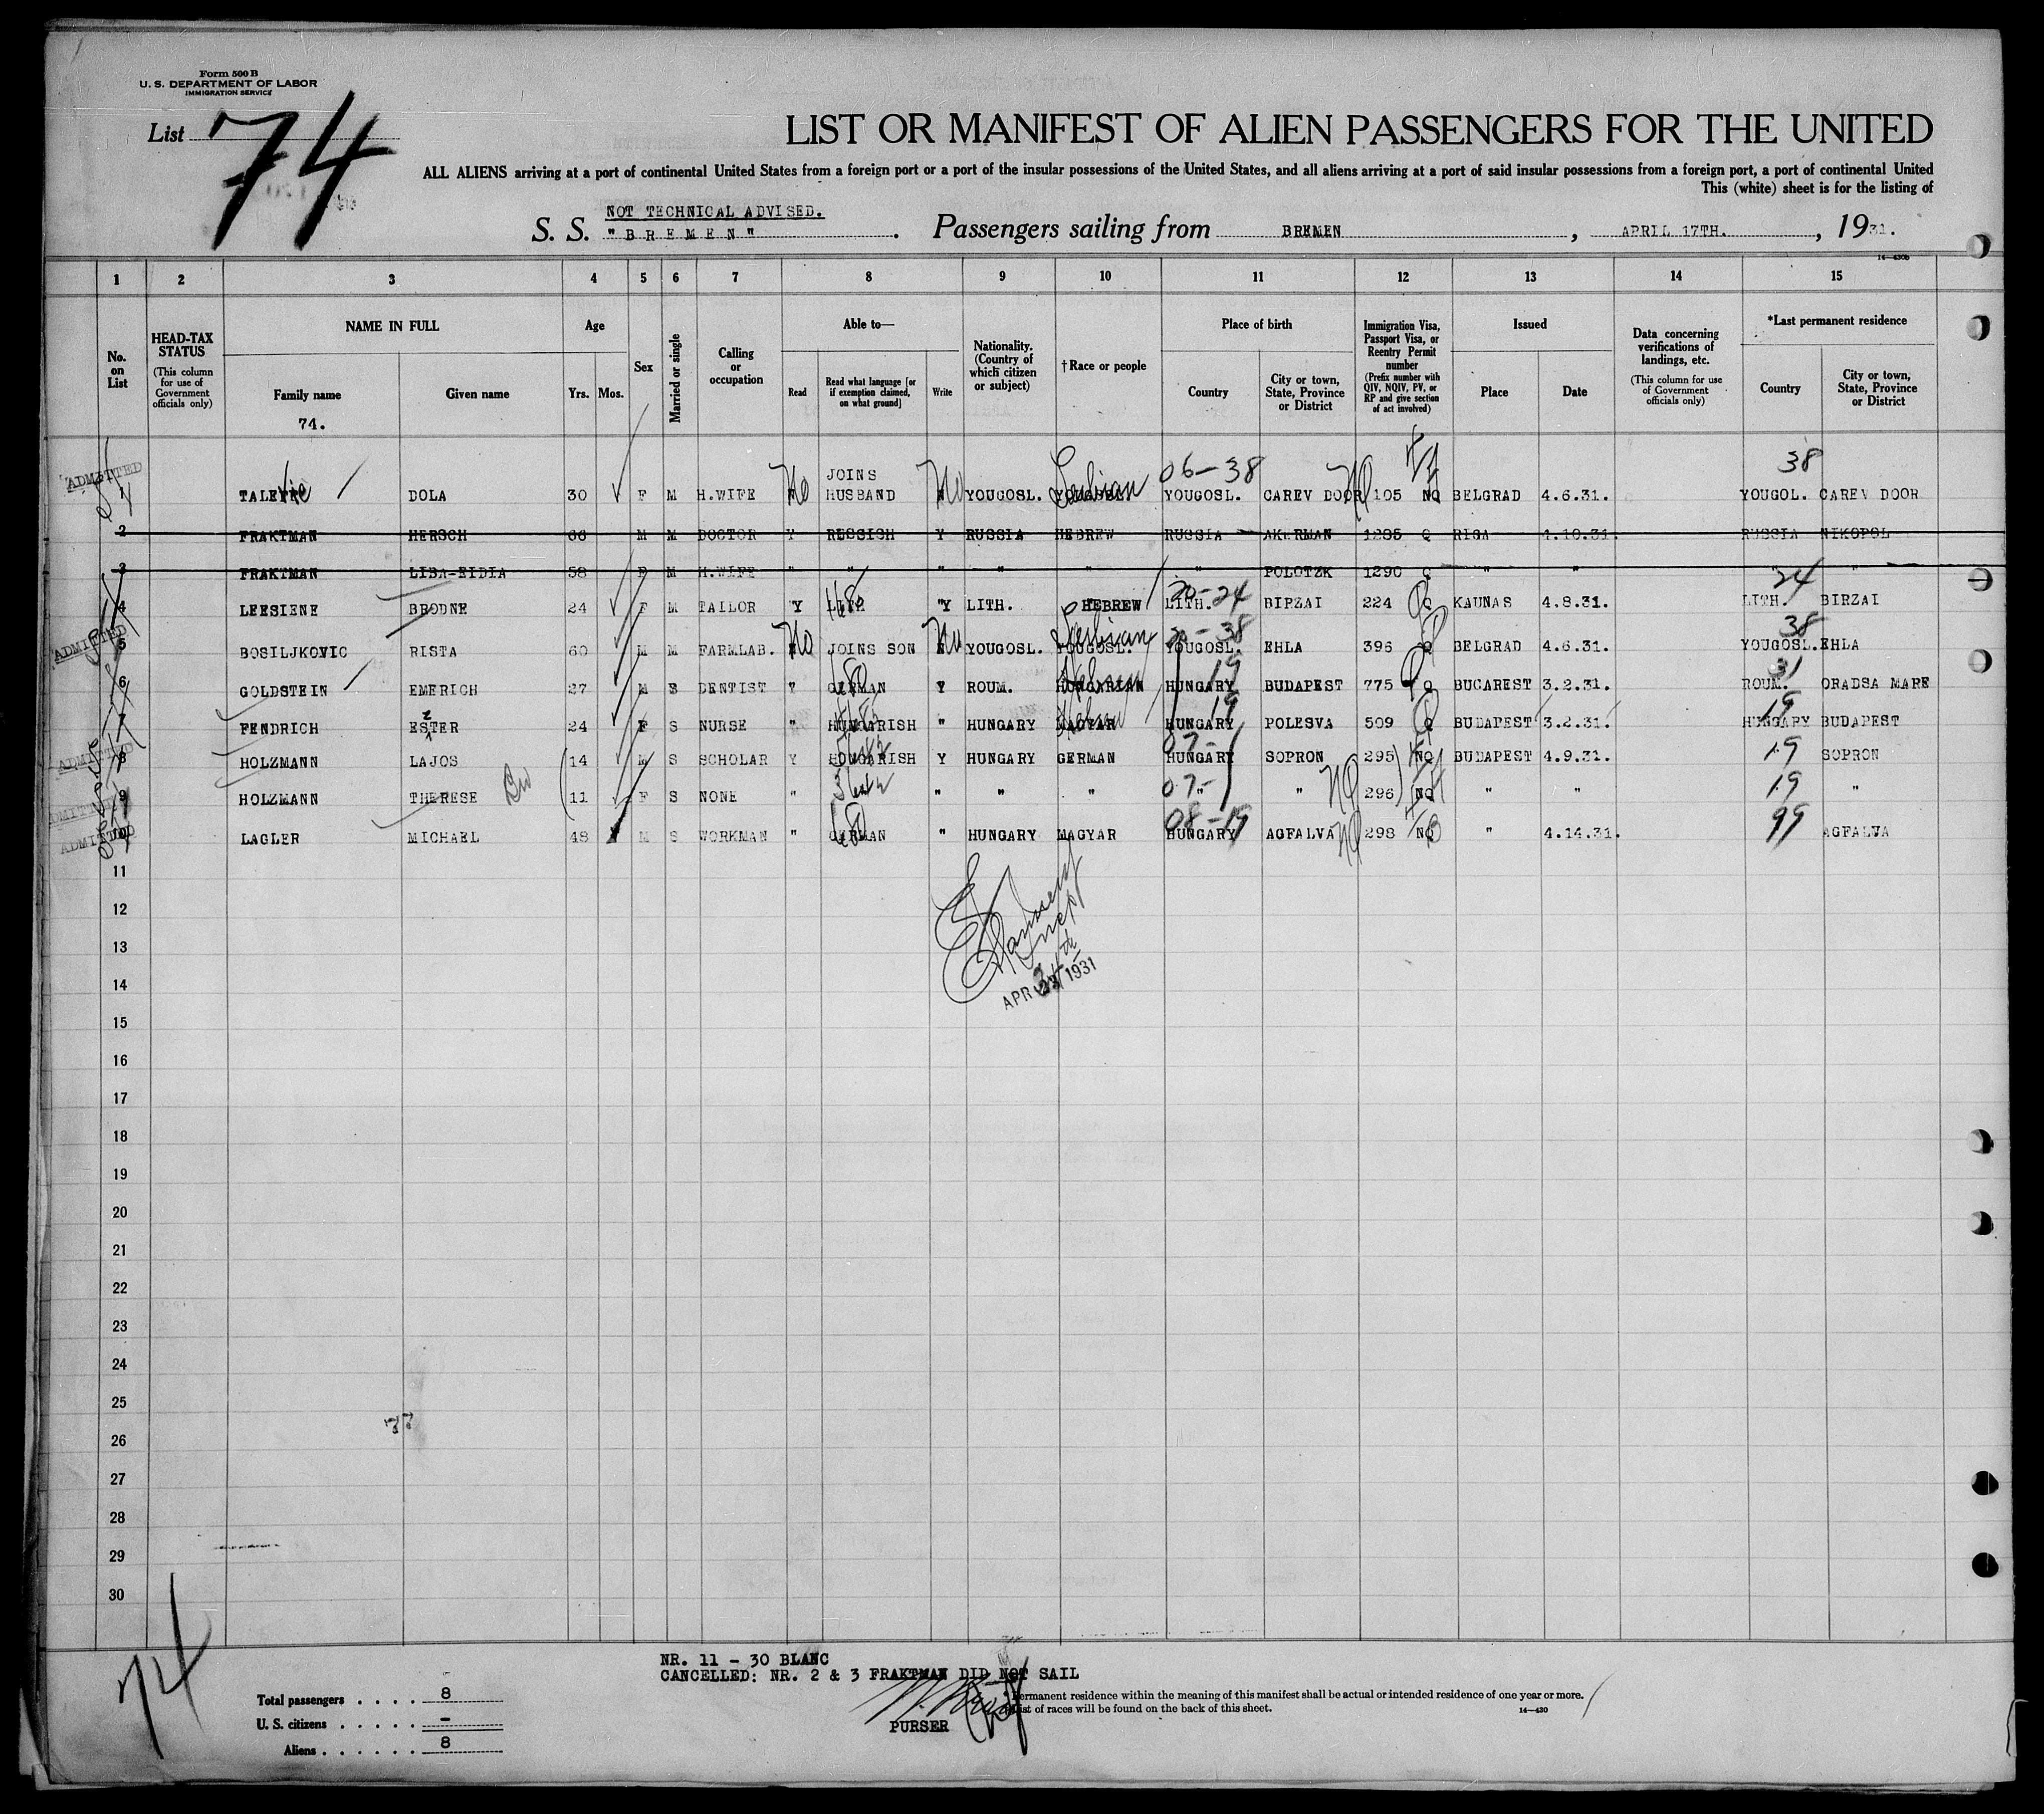 Form 500 B
U. S. DEPARTMENT OF LABOR
IMMIGRATION SERVICE
List 74
LIST OR MANIFEST OF ALIEN PASSENGERS FOR THE UNITED
ALL ALIENS arriving at a port of continental United States from a foreign port or a port of the insular possessions of the United States, and all aliens arriving at a port of said insular possessions from a foreign port, a port of continental United
This (white) sheet is for the listing of
NOT TECHNICAL ADVISED.
S. S. "BREMEN". Passengers sailing from BREMEN, APRIL 17TH., 1931.
14—430b
1 2 3 4 5 6 7 8 9 10 11 12 13 14 15
No. on List
HEAD-TAX STATUS
(This column for use of Government officials only)
NAME IN FULL
Family name
74.
Given name
Age
Yrs. Mos.
Sex
Married or single
Calling or occupation
Able to—
Read
Read what language [or if exemption claimed, on what ground]
Write
Nationality. (Country of which citizen or subject)
†Race or people
Place of birth
Country
City or town, State, Province or District
Immigration Visa, Passport Visa, or Reentry Permit number
(Prefix number with QIV, NQIV, PV, or RP and give section of act involved)
Issued
Place
Date
Data concerning verifications of landings, etc.
(This column for use of Government officials only)
*Last permanent residence
Country
City or town, State, Province or District
ADMITTED 1 DOLA 30 F M H.WIFE No JOINS HUSBAND No YOUGOSL. Serbian 06-38 YOUGOSL. CAREV DOOR NQ 105 NQ BELGRAD 4.6.31. 38 YOUGOL. CAREV DOOR
2 FRAKTMAN HERSCH 66 M M DOCTOR Y RUSSISH Y RUSSIA HEBREW RUSSIA AKERMAN 1285 Q RIGA 4.10.31. RUSSIA NIKOPOL
3 FRAKTMAN LISA-EIDIA 58 F M H.WIFE " " " " " " POLOTZK 1290 Q " " " "
4 LEESIENE BRODNE 24 F M TAILOR Y LITH. Y LITH. HEBREW 20-24 LITH. BIRZAI 224 Q KAUNAS 4.8.31. 24 LITH. BIRZAI
ADMITTED 5 BOSILJKOVIC RISTA 60 M M FARMLAB. No JOINS SON No YOUGOSL. YOUGOSL. Serbian 38 YOUGOSL. EHLA 396 Q BELGRAD 4.6.31. 38 YOUGOSL. EHLA
6 GOLDSTEIN EMERICH 27 M S DENTIST Y GERMAN Y ROUM. HUNGARIAN Hebrew 19 HUNGARY BUDAPEST 775 Q BUCAREST 3.2.31. 31 ROUM. ORADSA MARE
7 FENDRICH ESTER 24 F S NURSE " HUNGARISH " HUNGARY MAGYAR Hebrew 19 HUNGARY POLESVA 509 Q BUDAPEST 3.2.31. 19 HUNGARY BUDAPEST
ADMITTED 8 HOLZMANN LAJOS 14 M S SCHOLAR Y HUNGARISH Y HUNGARY GERMAN 07- HUNGARY SOPRON 295 NQ BUDAPEST 4.9.31. 19 SOPRON
ADMITTED 9 HOLZMANN THERESE 11 F S NONE " " " " 07- " " NQ 296 NQ " " 19 "
ADMITTED 10 LAGLER MICHAEL 48 M S WORKMAN " GERMAN " HUNGARY MAGYAR 08-19 HUNGARY AGFALVA NQ 298 NQ " 4.14.31. 99 AGFALVA
11
12
13
14 APR 1931
15
16
17
18
19
20
21
22
23
24
25
26
27
28
29
30
74
NR. 11 - 30 BLANC
CANCELLED: NR. 2 & 3 FRAKTMAN DID NOT SAIL
Total passengers . . . . 8
U. S. citizens . . . . . –
Aliens . . . . . . 8
PURSER
Permanent residence within the meaning of this manifest shall be actual or intended residence of one year or more.
List of races will be found on the back of this sheet.
14—430